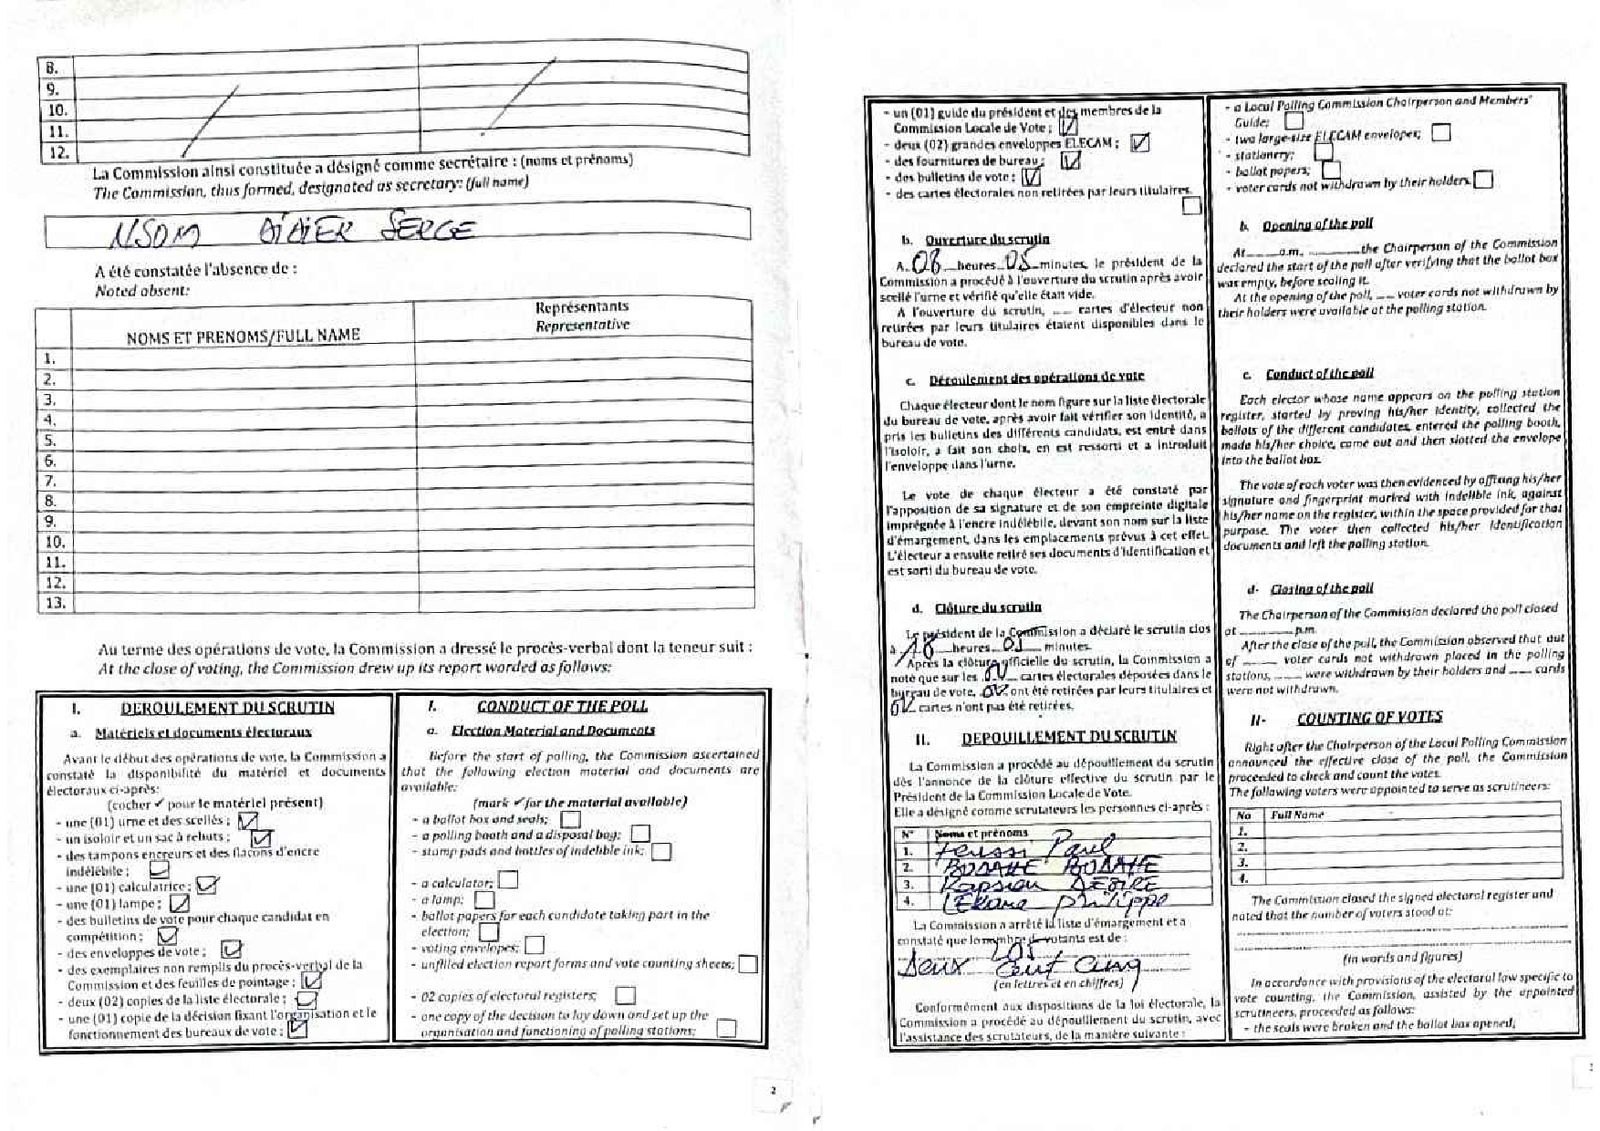 8.
9.
10.
11.
12.
La Commission ainsi constituée a désigné comme secrétaire : (noms et prénoms)
The Commission, thus formed, designated as secretary: (full name)
NSOM DIDIER SERGE
A été constatée l'absence de :
Noted absent:
NOMS ET PRENOMS/FULL NAME
Représentants
Representative
1.
2.
3.
4.
5.
6.
7.
8.
9.
10.
11.
12.
13.
Au terme des opérations de vote, la Commission a dressé le procès-verbal dont la teneur suit :
At the close of voting, the Commission drew up its report worded as follows:
I. DEROULEMENT DU SCRUTIN
a. Matériels et documents électoraux
Avant le début des opérations de vote, la Commission a
constaté la disponibilité du matériel et documents
électoraux ci-après:
(cocher ✓ pour le matériel présent)
- une (01) urne et des scellés ;
- un isoloir et un sac à rebuts ;
- des tampons encreurs et des flacons d'encre
indélébile ;
- une (01) calculatrice ;
- une (01) lampe ;
- des bulletins de vote pour chaque candidat en
compétition ;
- des enveloppes de vote ;
- des exemplaires non remplis du procès-verbal de la
Commission et des feuilles de pointage ;
- deux (02) copies de la liste électorale ;
- une (01) copie de la décision fixant l'organisation et le
fonctionnement des bureaux de vote ;
I. CONDUCT OF THE POLL
a. Election Material and Documents
Before the start of polling, the Commission ascertained
that the following election material and documents are
available:
(mark ✓ for the material available)
- a ballot box and seals;
- a polling booth and a disposal bag;
- stamp pads and bottles of indelible ink;
- a calculator;
- a lamp;
- ballot papers for each candidate taking part in the
election;
- voting envelopes;
- unfilled election report forms and vote counting sheets;
- 02 copies of electoral registers;
- one copy of the decision to lay down and set up the
organisation and functioning of polling stations;
2
- un (01) guide du président et des membres de la
Commission Locale de Vote ;
- deux (02) grandes enveloppes ELECAM ;
- des fournitures de bureau ;
- des bulletins de vote ;
- des cartes électorales non retirées par leurs titulaires.
b. Ouverture du scrutin
A 08 heures 05 minutes, le président de la
Commission a procédé à l'ouverture du scrutin après avoir
scellé l'urne et vérifié qu'elle était vide.
A l'ouverture du scrutin, ___ cartes d'électeur non
retirées par leurs titulaires étaient disponibles dans le
bureau de vote.
c. Déroulement des opérations de vote
Chaque électeur dont le nom figure sur la liste électorale
du bureau de vote, après avoir fait vérifier son identité, a
pris les bulletins des différents candidats, est entré dans
l'isoloir, a fait son choix, en est ressorti et a introduit
l'enveloppe dans l'urne.
Le vote de chaque électeur a été constaté par
l'apposition de sa signature et de son empreinte digitale
imprégnée à l'encre indélébile, devant son nom sur la liste
d'émargement, dans les emplacements prévus à cet effet.
L'électeur a ensuite retiré ses documents d'identification et
est sorti du bureau de vote.
d. Clôture du scrutin
Le président de la Commission a déclaré le scrutin clos
à 18 heures minutes.
Après la clôture officielle du scrutin, la Commission a
noté que sur les cartes électorales déposées dans le
bureau de vote, ont été retirées par leurs titulaires et
cartes n'ont pas été retirées.
II. DEPOUILLEMENT DU SCRUTIN
La Commission a procédé au dépouillement du scrutin
dès l'annonce de la clôture effective du scrutin par le
Président de la Commission Locale de Vote.
Elle a désigné comme scrutateurs les personnes ci-après :
N° Noms et prénoms
1. Feussi Paul
2.
3. DESIRE
4. philippe
La Commission a arrêté la liste d'émargement et a
constaté que le nombre de votants est de :
205
Deux cent cinq
(en lettres et en chiffres)
Conformément aux dispositions de la loi électorale, la
Commission a procédé au dépouillement du scrutin, avec
l'assistance des scrutateurs, de la manière suivante :
- a Local Polling Commission Chairperson and Members'
Guide;
- two large-size ELECAM envelopes;
- stationery;
- ballot papers;
- voter cards not withdrawn by their holders.
b. Opening of the poll
At ___ a.m, ___ the Chairperson of the Commission
declared the start of the poll after verifying that the ballot box
was empty, before sealing it.
At the opening of the poll, ___ voter cards not withdrawn by
their holders were available at the polling station.
c. Conduct of the poll
Each elector whose name appears on the polling station
register, started by proving his/her identity, collected the
ballots of the different candidates, entered the polling booth,
made his/her choice, came out and then slotted the envelope
into the ballot box.
The vote of each voter was then evidenced by affixing his/her
signature and fingerprint marked with indelible ink, against
his/her name on the register, within the space provided for that
purpose. The voter then collected his/her identification
documents and left the polling station.
d- Closing of the poll
The Chairperson of the Commission declared the poll closed
at ___ p.m.
After the close of the poll, the Commission observed that out
of ___ voter cards not withdrawn placed in the polling
stations, ___ were withdrawn by their holders and ___ cards
were not withdrawn.
II- COUNTING OF VOTES
Right after the Chairperson of the Local Polling Commission
announced the effective close of the poll, the Commission
proceeded to check and count the votes.
The following voters were appointed to serve as scrutineers:
No Full Name
1.
2.
3.
4.
The Commission closed the signed electoral register and
noted that the number of voters stood at:
(in words and figures)
In accordance with provisions of the electoral law specific to
vote counting, the Commission, assisted by the appointed
scrutineers, proceeded as follows:
- the seals were broken and the ballot box opened;